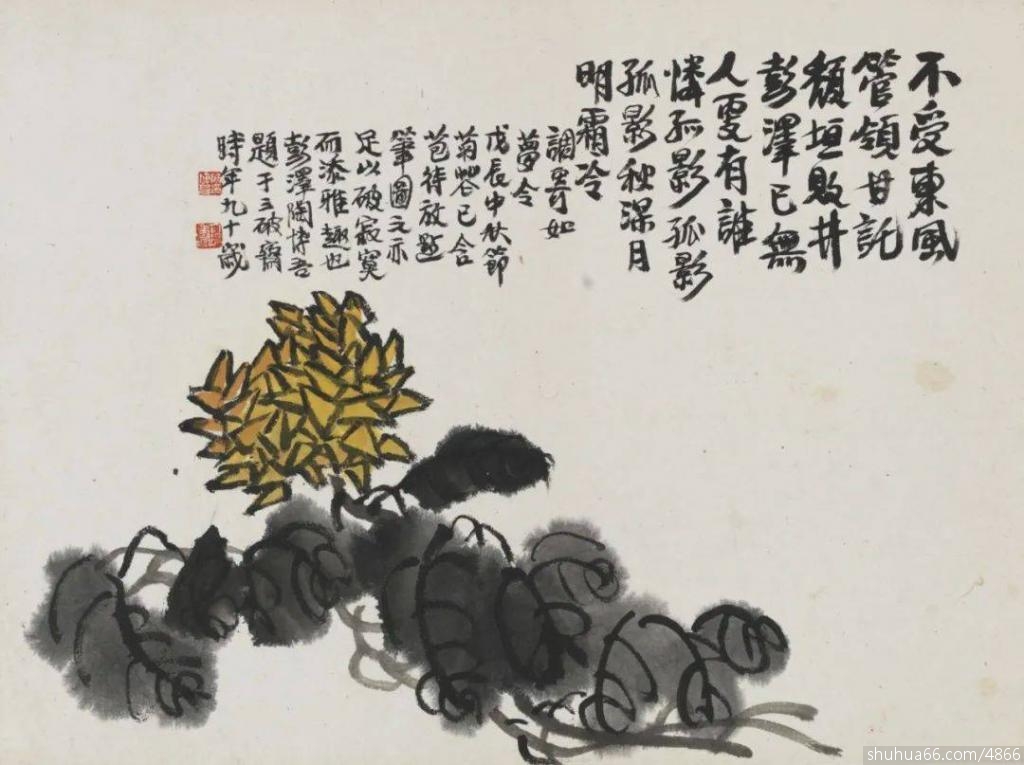 不受東風
管領甘託
頹垣敗井
彭澤已無
人更有誰
憐孤影孤影
孤影秋深月
明霜冷
調寄如
夢令
戊辰中秋節
菊蕾已含
苞待放點
筆圖之亦
足以破寂寞
而添雅趣也
彭澤陶博吾
題于三破齋
時年九十歲
shuhua66.com/4866